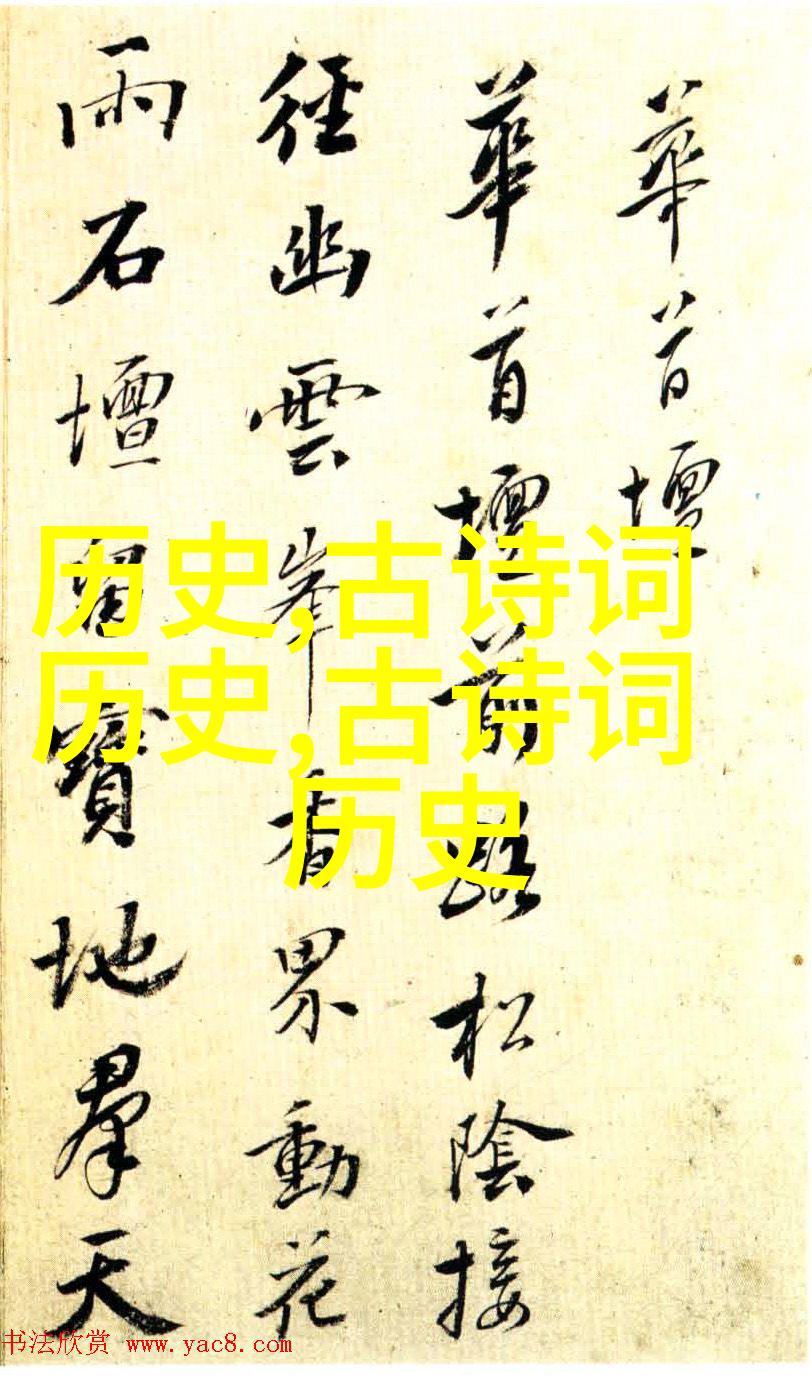 華首壇
華首壇前路松陰接
徑幽雲峯香界動花
雨石壇留寶地羣天
历史,古诗词
历史,古诗词
历史
书法欣赏 www.yac8.com